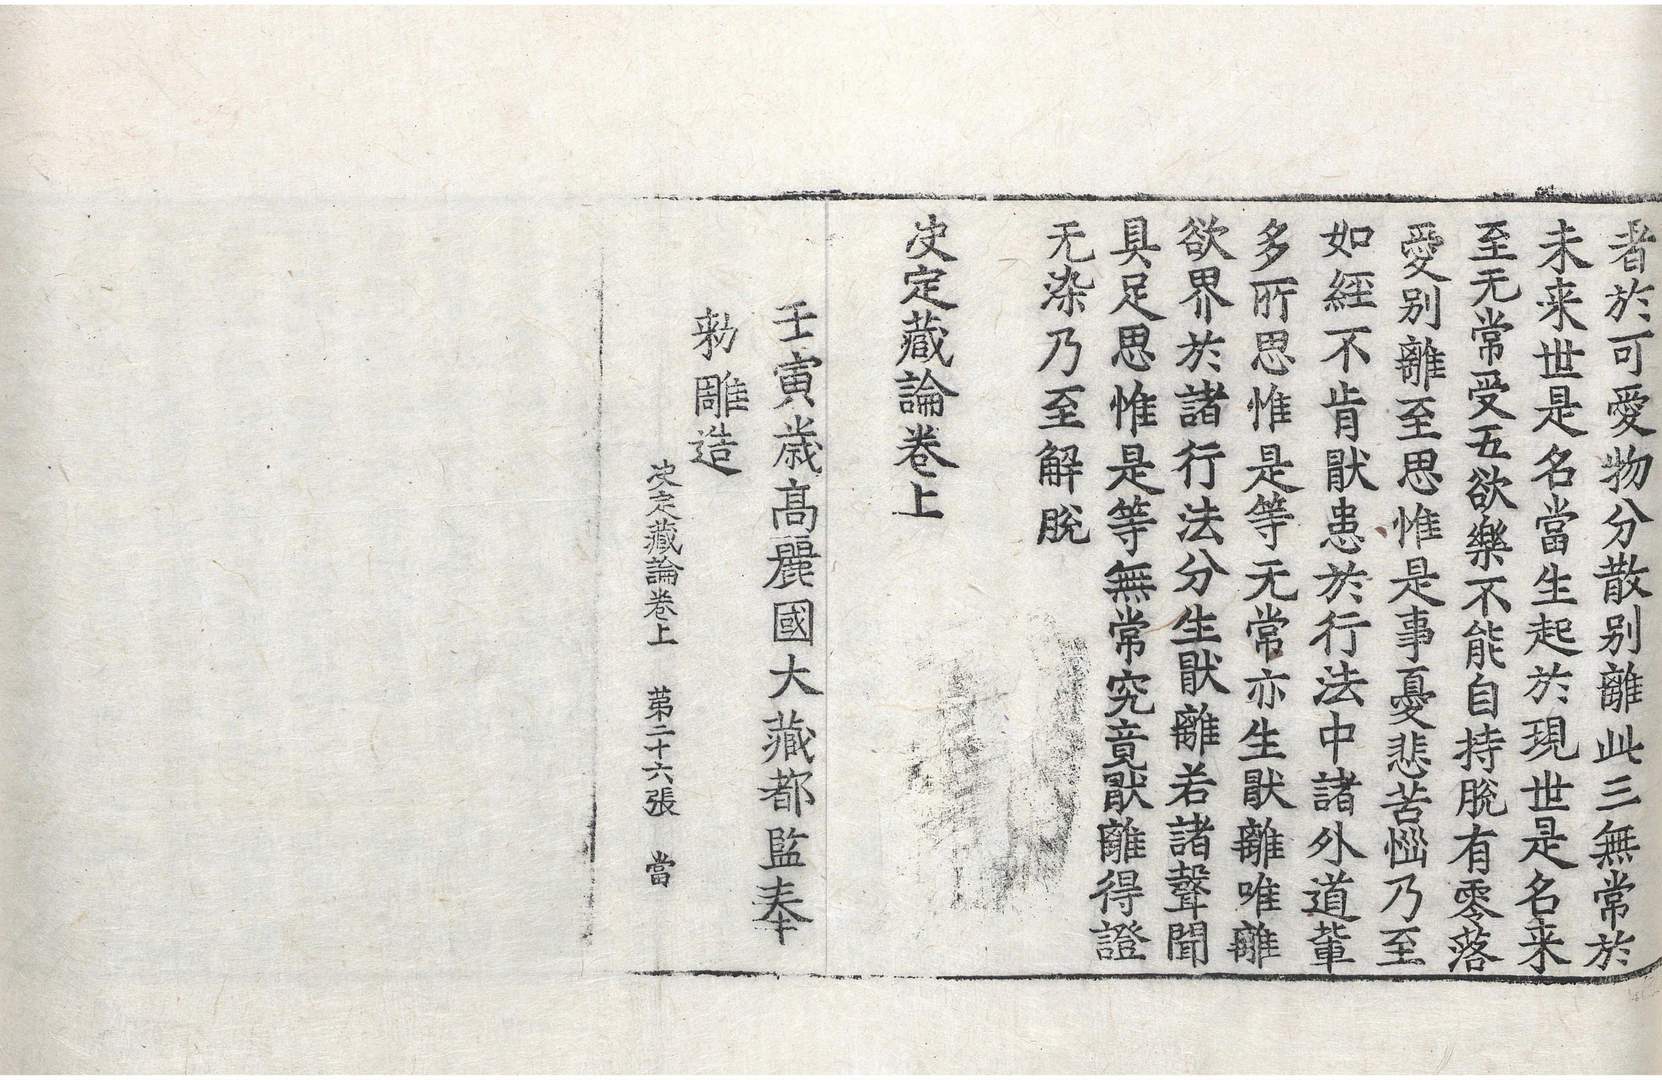 者於可愛物分散別離此三無常於
未来世是名當生起於現世是名来
至无常受五欲樂不能自持脫有零落
愛别離至思惟是事憂悲苦惱乃至
如經不肯猒患於行法中諸外道輩
多所思惟是等无常亦生猒離唯離
欲界於諸行法分生猒離若諸聲聞
具足思惟是等無常究竟猒離得證
无染乃至解脫
决定藏論卷上
壬寅歲高麗國大藏都監奉
勑雕造
决定藏論卷上　第二十六張　當